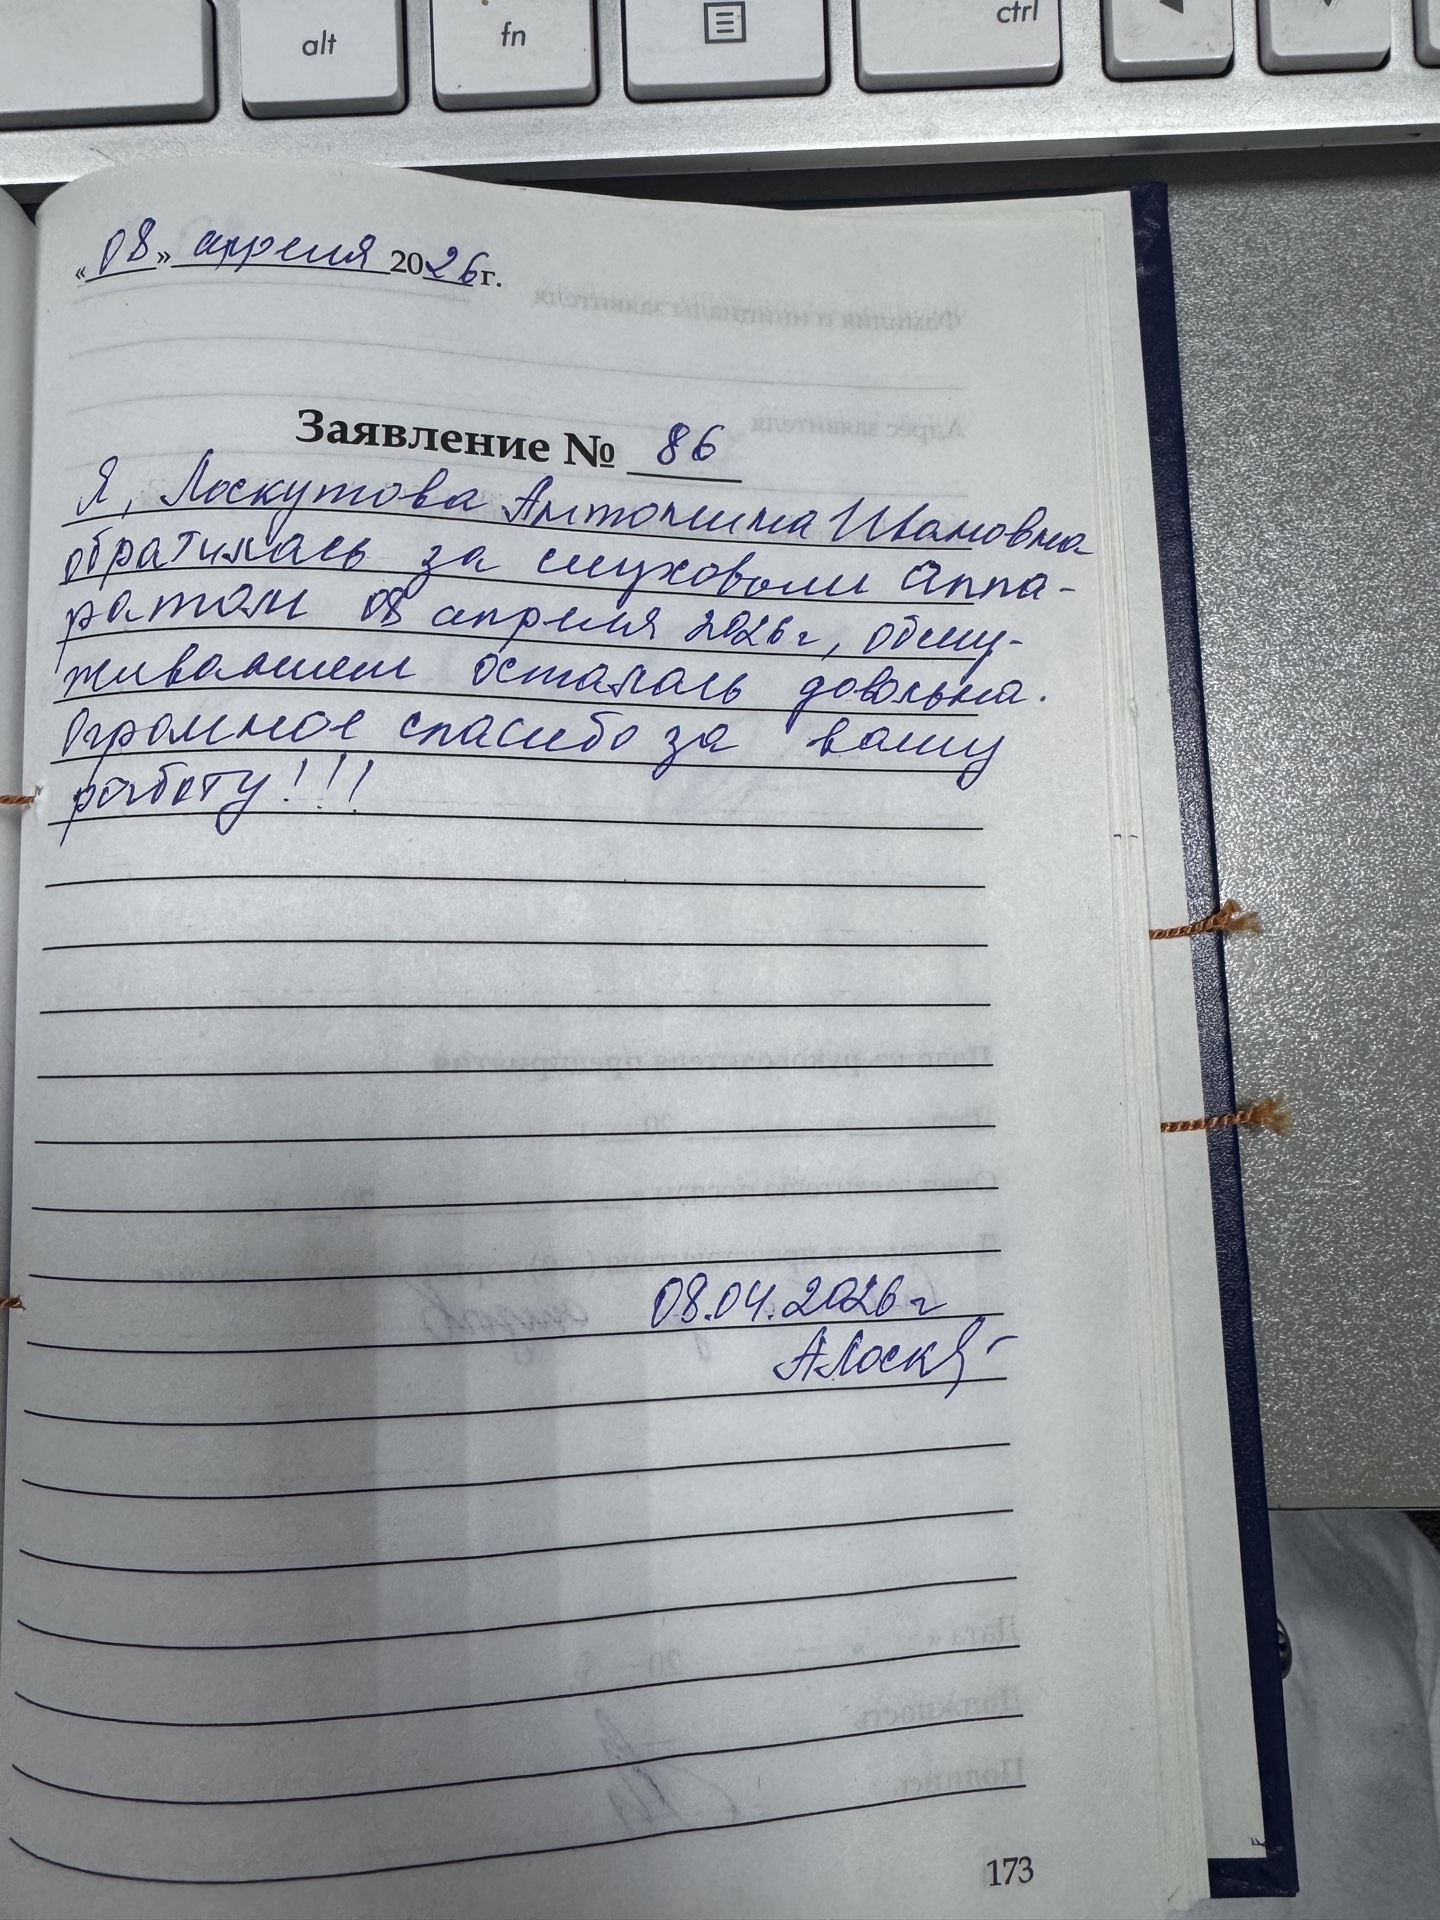 alt
fn
ctrl
«08» апреля 2026г.
Заявление № 86
Я, Лоскутова Антонина Ивановна
обратилась за слуховым аппа-
ратом 08 апреля 2026г, обслу-
живанием осталась довольна.
Огромное спасибо за вашу
работу!!!
08.04.2026г
АЛоск
173